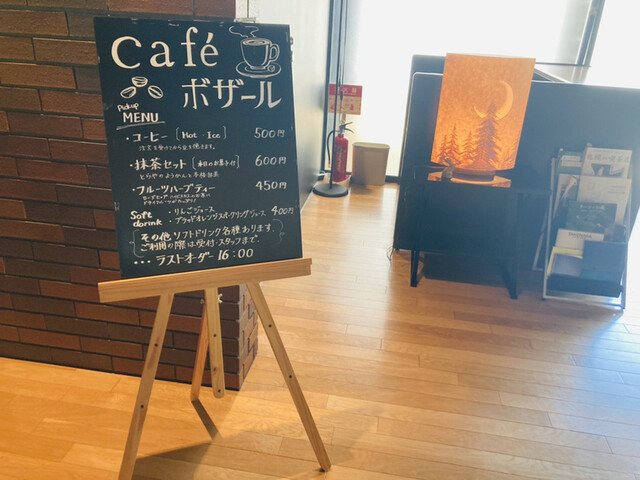 Café
ボザール
Pick up
MENU
・コーヒー [Hot・Ice] 500円
注文を受けてから豆を挽きます。
・抹茶セット [本日のお菓子付] 600円
とらやのようかんと季節抹茶
・フルーツハーブティー 450円
Soft drink ・りんごジュース 400円
・ブラッドオレンジスパークリングジュース
その他ソフトドリンク各種あります。
ご利用の際は受付・スタッフまで。
・・・ラストオーダー 16:00